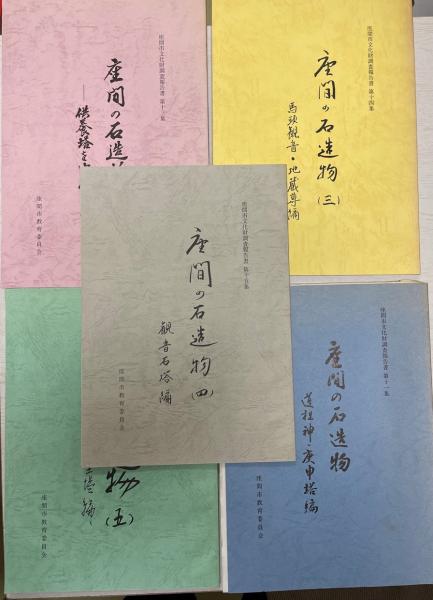 座間市文化財調査報告書 第十二集
座間の石造
供養塔を
座間市教育委員会
座間市文化財調査報告書 第十四集
座間の石造物(三)
馬頭観音・地蔵尊編
座間市文化財調査報告書 第十五集
座間の石造物(四)
観音石塔編
座間市教育委員会
物(五)
塔編
座間市教育委員会
座間市文化財調査報告書 第十一集
座間の石造物
道祖神・庚申塔編
座間市教育委員会